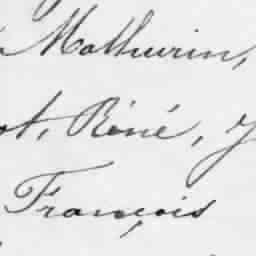 Mathurin,
ot, Réné, J
François